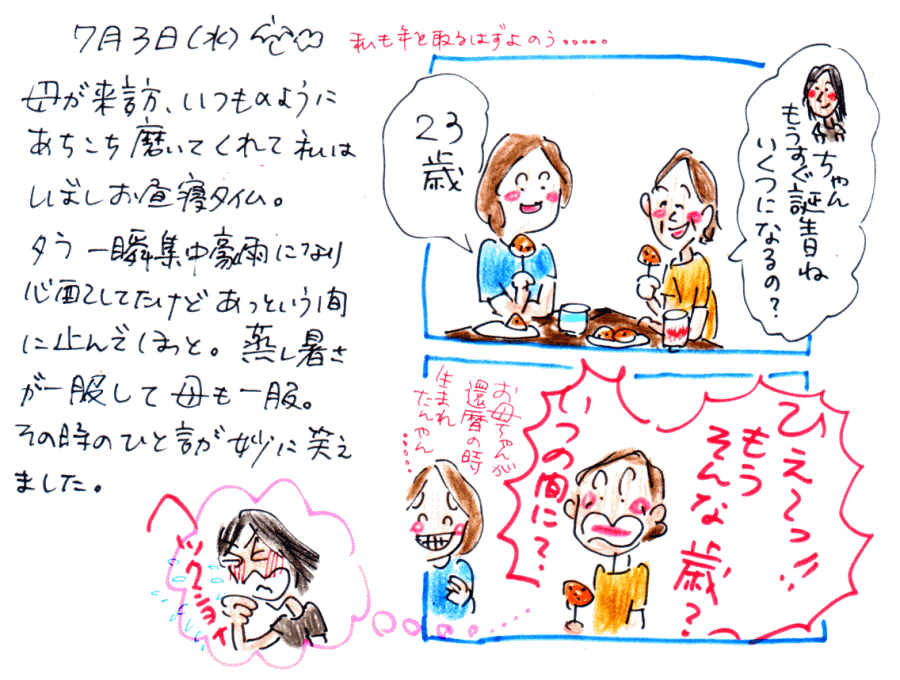 7月3日(水)
私も年を取るはずよのう.....
母が来訪、いつものように
あちこち磨いてくれて私は
しばしお昼寝タイム。
夕方一瞬集中豪雨になり
心配してたけどあっという間
に止んでほっと。蒸し暑さ
が一服して母も一服。
その時のひと言が妙に笑え
ました。
ちゃん
もうすぐ誕生日ね
いくつになるの?
23
歳
ひえ〜っ!!
もう
そんな歳?
いつの間に?
お母ちゃんが
還暦の時
生まれ
たんやん.....
ヘックショイ